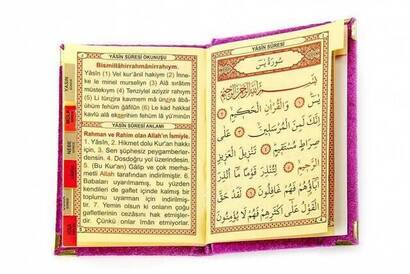 YÂSÎN SÛRESİ OKUNUŞU
Bismillâhirrahmânirrahıym.
Yâsîn (1) Vel kur'ânil hakiym (2) İnne-
ke le minel murseliyn (3) Alâ sırâtın
mustekıym (4) Tenziylel aziyzir rahıym
(5) Li tünzira kavmem mâ ünzira âbâ-
ühüm fehüm ğâfilûn (6) Le kad hakkal
kavlü alâ ekserihim fehüm lâ yü'minûn
YÂSÎN SÛRESİ ANLAMI
Rahman ve Rahim olan Allah'ın İsmiyle.
1. Yâsîn, 2. Hikmet dolu Kur'an hakkı
için, 3. Sen şüphesiz peygamberler-
densin. 4. Dosdoğru yol üzerindesin.
5. (Bu Kur'an) Gâlip ve çok mer-
hametli Allah tarafından indirilmiştir. 6.
Babaları uyarılmamış, bu yüzden
kendileri de gaflet içinde kalmış bir
toplumu uyarman için indirilmiştir.
7. Yemin olsun ki onların çoğu
gafletlerinin cezasını hak etmişler-
dir. Çünkü onlar iman etmiyorlar.
YÂSÎN
NEBE
YÂSÎN SÛRESİ
سُورَةُ يٰسٓ
بِسْمِ اللّٰهِ الرَّحْمٰنِ الرَّحِيمِ
يٰسٓ ﴿١﴾ وَالْقُرْاٰنِ الْحَكِيمِ ﴿٢﴾
اِنَّكَ لَمِنَ الْمُرْسَلِينَ ﴿٣﴾ عَلٰى
صِرَاطٍ مُسْتَقِيمٍ ﴿٤﴾ تَنْزِيلَ الْعَزِيزِ
الرَّحِيمِ ﴿٥﴾ لِتُنْذِرَ قَوْمًا مَا اُنْذِرَ
اٰبَاؤُهُمْ فَهُمْ غَافِلُونَ ﴿٦﴾ لَقَدْ حَقَّ
الْقَوْلُ عَلٰى اَكْثَرِهِمْ فَهُمْ لَا يُؤْمِنُونَ